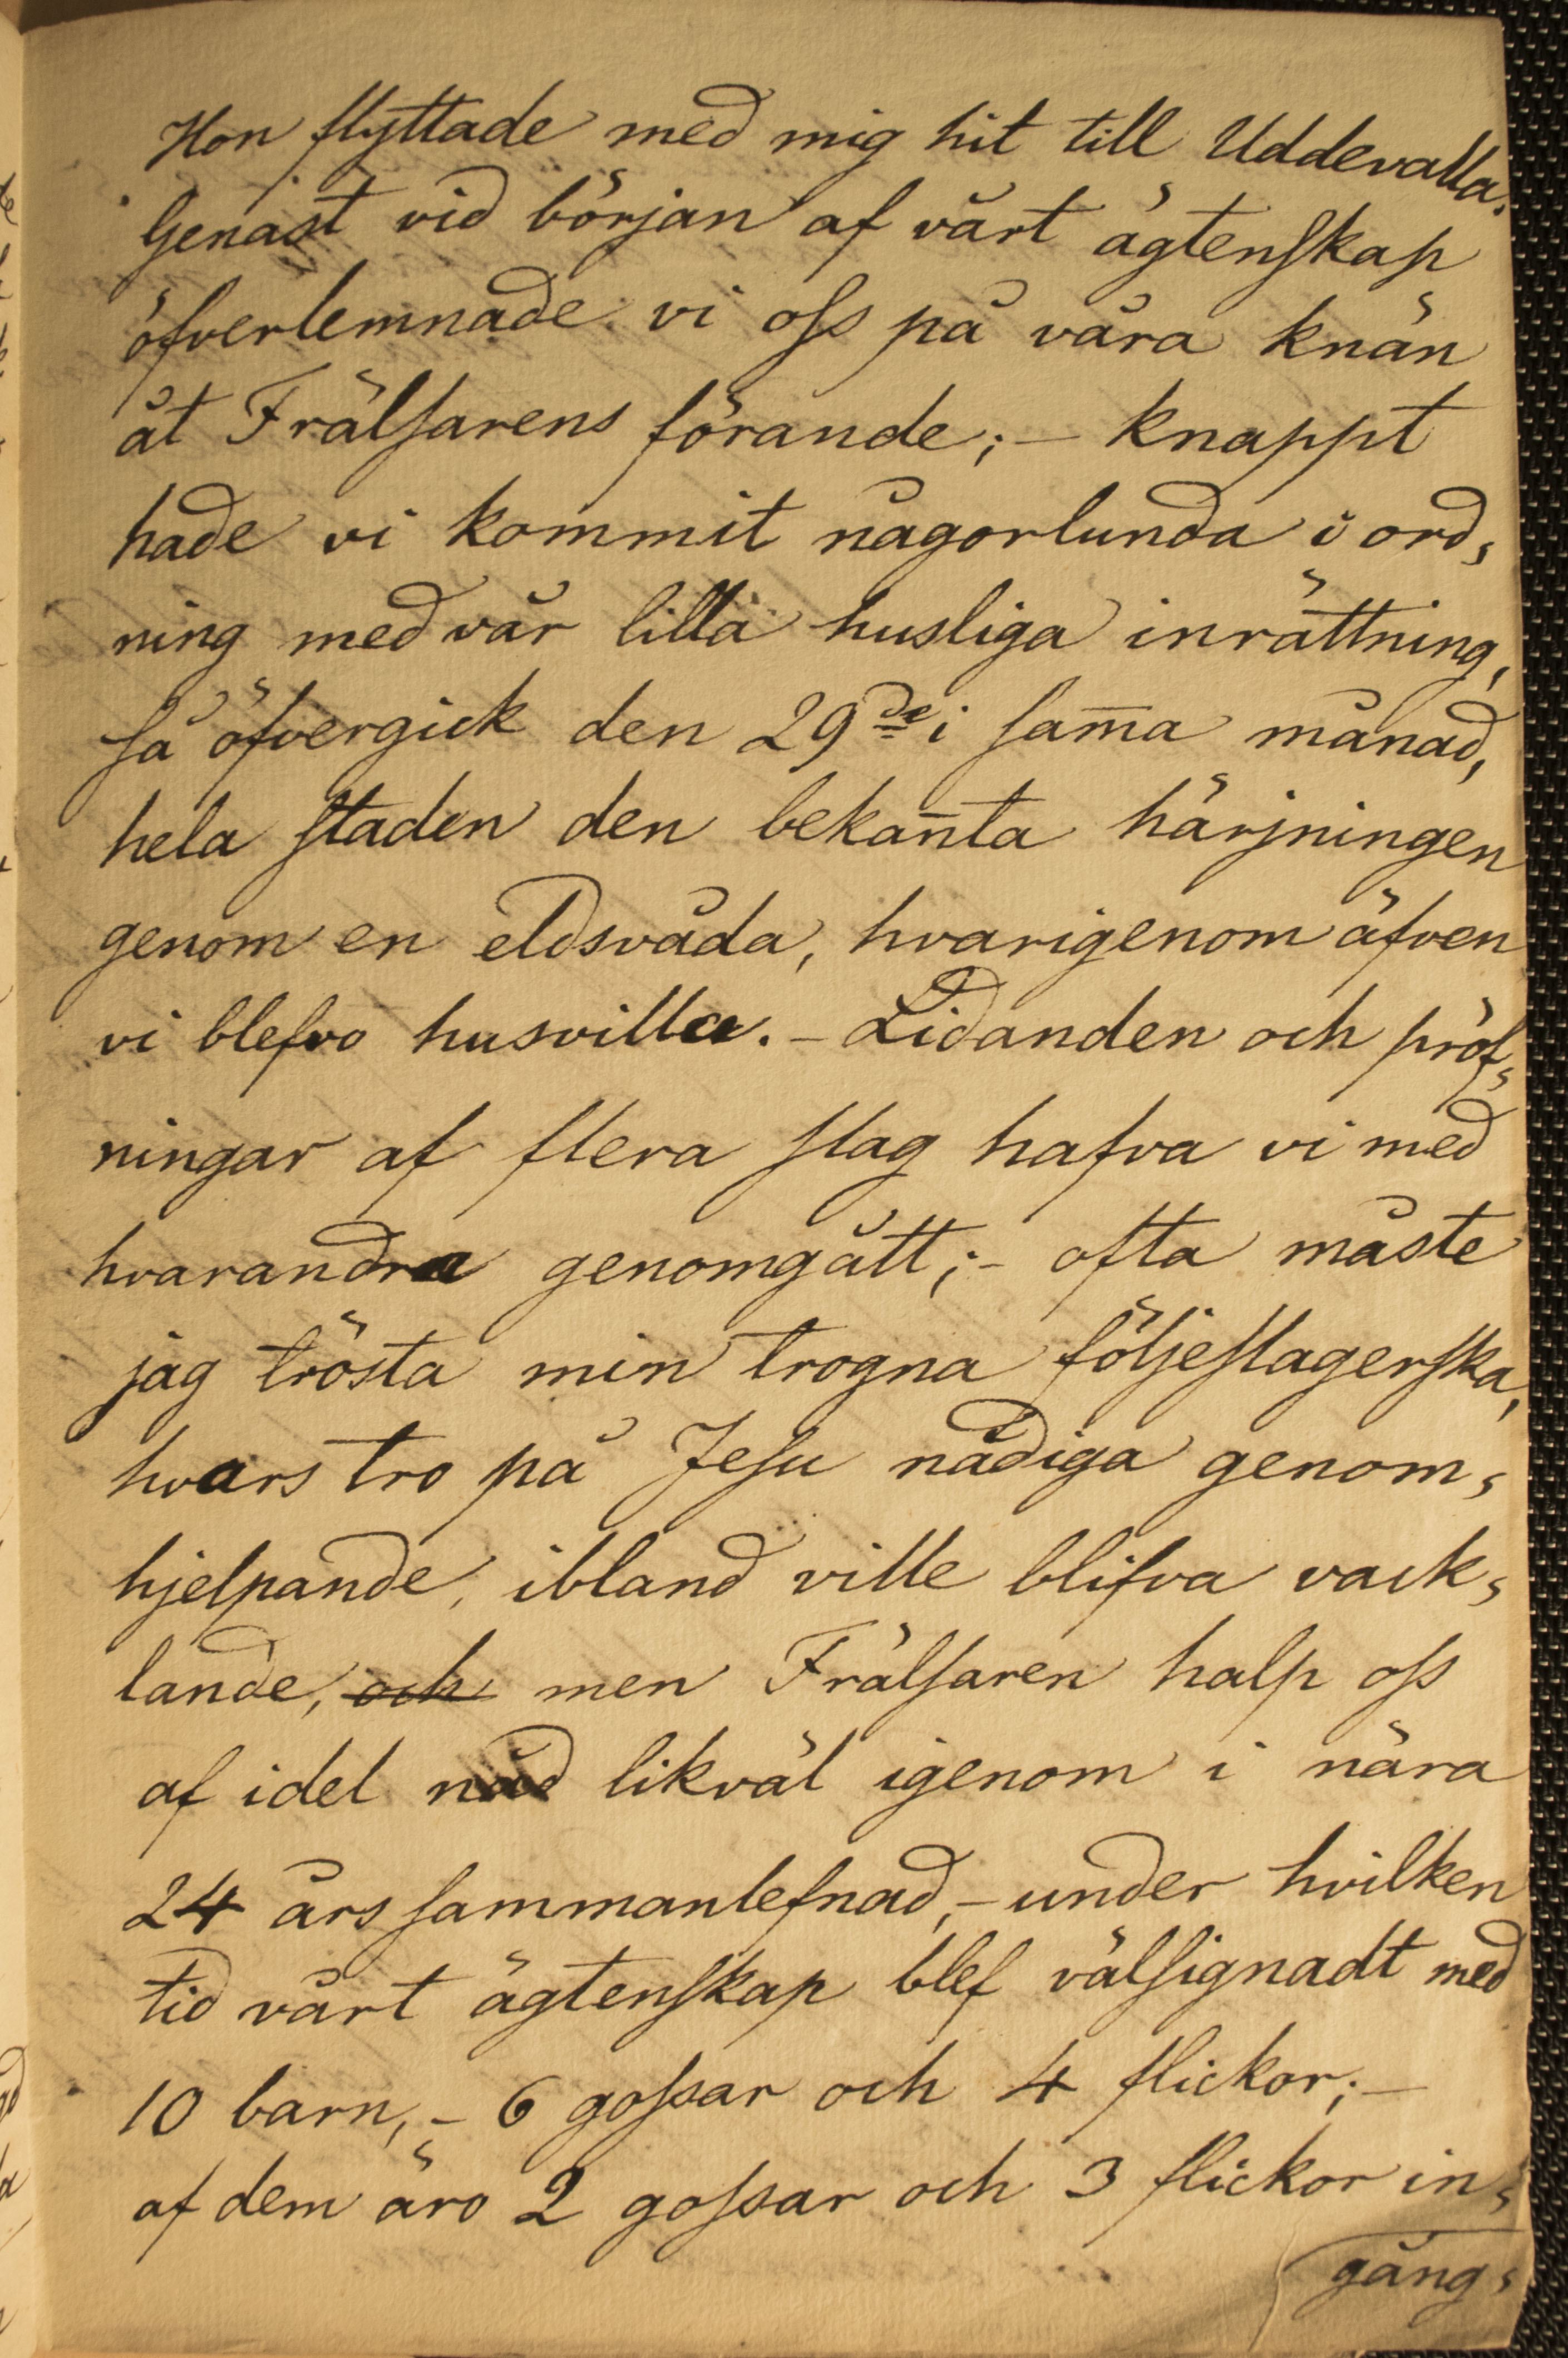 Hon flyttade med mig hit till Uddevalla.
Genast vid början af vårt ägtenskap
öfverlemnade vi oss på våra knän
åt Frälsarens förande; – knappt
hade vi kommit någorlunda i ord,
ning med vår lilla husliga inrättning,
så öfvergick den 29de i sam̄a månad,
hela staden den bekan̄ta härjningen
genom en eldsvåda, hvarigenom äfven
vi blefvo husvilla. – Lidanden och pröf,
ningar af flera slag hafva vi med
hvarandra genomgått; – ofta måste
jag trösta min trogna följeslagerska,
hvars tro på Jesu nådiga genom,
hjelpande, ibland ville blifva vack,
lande, och men Frälsaren halp oss
af idel nåd likväl igenom i nära
24 års sammanlefnad, – under hvilken
tid vårt ägtenskap blef välsignadt med
10 barn, – 6 gossar och 4 flickor; –
af dem äro 2 gossar och 3 flickor in,
gång,